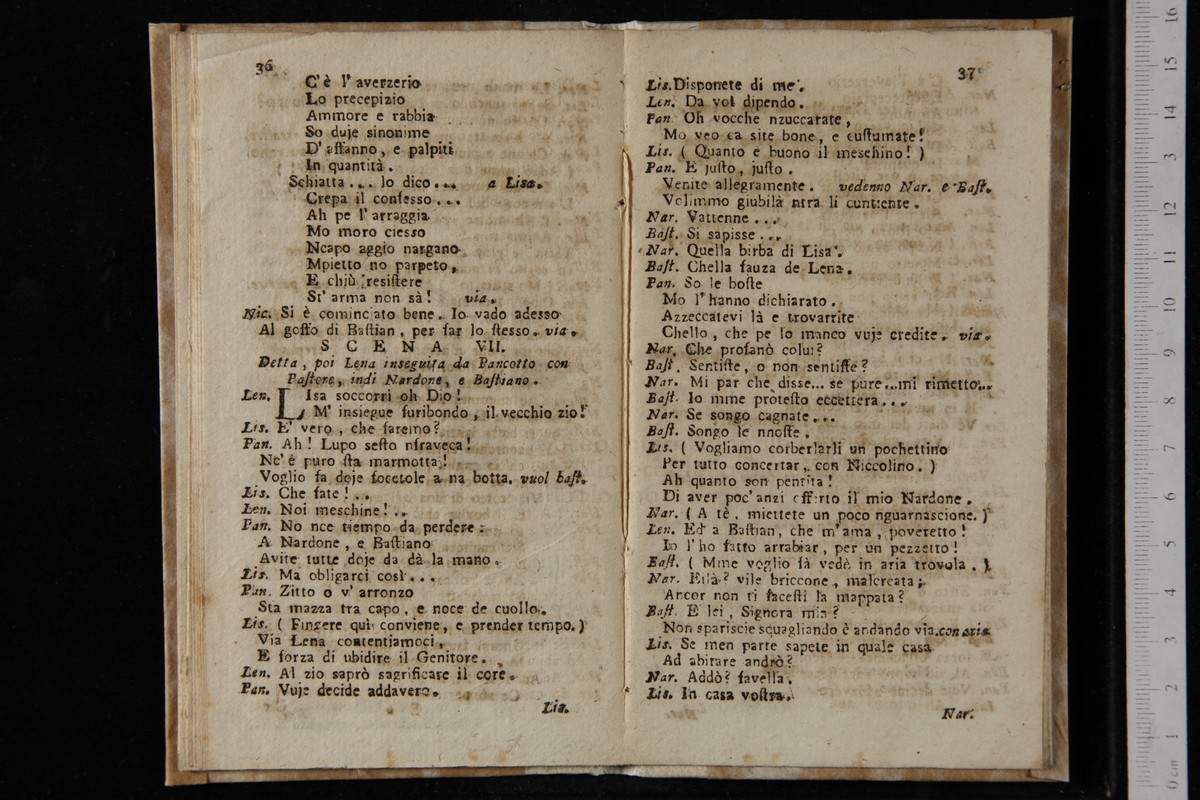 36
C' è l' averzerio
Lo precepizio
Ammore e rabbia
So duje sinonime
D' affanno, e palpiti
In quantità.
Schiatta... lo dico... a Lisa.
Crepa il confesso...
Ah pe l' arraggia
Mo moro ciesso
Ncapo aggio nargano
Mpietto no parpeto,
E chiù resistere
St' arma non sà! via.
Nic. Si è cominciato bene. Io vado adesso
Al goffo di Bastian, per far lo stesso. via.
SCENA VII.
Detta, poi Lena inseguita da Pancotto con
Pastore, indi Nardone, e Bastiano.
Len. Lisa soccorri oh Dio!
M' insiegue furibondo, il vecchio zio!
Lis. E' vero, che faremo?
Pan. Ah! Lupo sesto nfraveca!
Nc' è puro sta marmotta!
Voglio fa doje focetole a na botta. vuol bast.
Lis. Che fate!..
Len. Noi meschine!..
Pan. No nce tiempo da perdere:
A Nardone, e Bastiano
Avite tutte doje da dà la mano.
Lis. Ma obligarci così...
Pan. Zitto o v' arronzo
Sta mazza tra capo, e noce de cuollo.
Lis. (Fingere quì conviene, e prender tempo.)
Via Lena contentiamoci,
E forza di ubidire il Genitore.
Len. Al zio saprò sagrificare il core.
Pan. Vuje decide addavero.
Lis.
37
Lis. Disponete di me.
Len. Da voi dipendo.
Pan. Oh vocche nzuccarate,
Mo veo ca site bone, e custumate!
Lis. (Quanto e buono il meschino!)
Pan. E justo, justo.
Venite allegramente. vedenno Nar. e Bast.
Volimmo giubilà ntra li cuntiente.
Nar. Vattenne...
Bast. Si sapisse...
Nar. Quella birba di Lisa.
Bast. Chella fauza de Lena.
Pan. So le boste
Mo l' hanno dichiarato.
Azzeccatevi là e trovarrite
Chello, che pe lo manco vuje credite. via.
Nar. Che profanò colui?
Bast. Sentiste, o non sentiste?
Nar. Mi par che disse... se pure...mi rimetto...
Bast. Io mme protesto eccettera...
Nar. Se songo cagnate...
Bast. Songo le nnoste.
Lis. (Vogliamo corberlarli un pochettino
Per tutto concertar, con Niccolino.)
Ah quanto son pentita!
Di aver poc' anzi offerto il mio Nardone.
Nar. (A tè, miettete un poco nguarnascione.)
Len. Ed a Bastian, che m' ama, poveretto!
Io l' ho fatto arrabiar, per un pezzetto!
Bast. (Mme voglio fà vedè in aria trovola.)
Nar. Eilà? vile briccone, malcreata;
Ancor non ti facesti la mappata?
Bast. E lei, Signora mia?
Non spariscie squagliando è andando via.con aria
Lis. Se men parte sapete in quale casa
Ad abitare andrò?
Nar. Addò? favella.
Lis. In casa vostra.
Nar.
16
15
14
13
12
11
10
9
8
7
6
5
4
3
2
1
0 cm